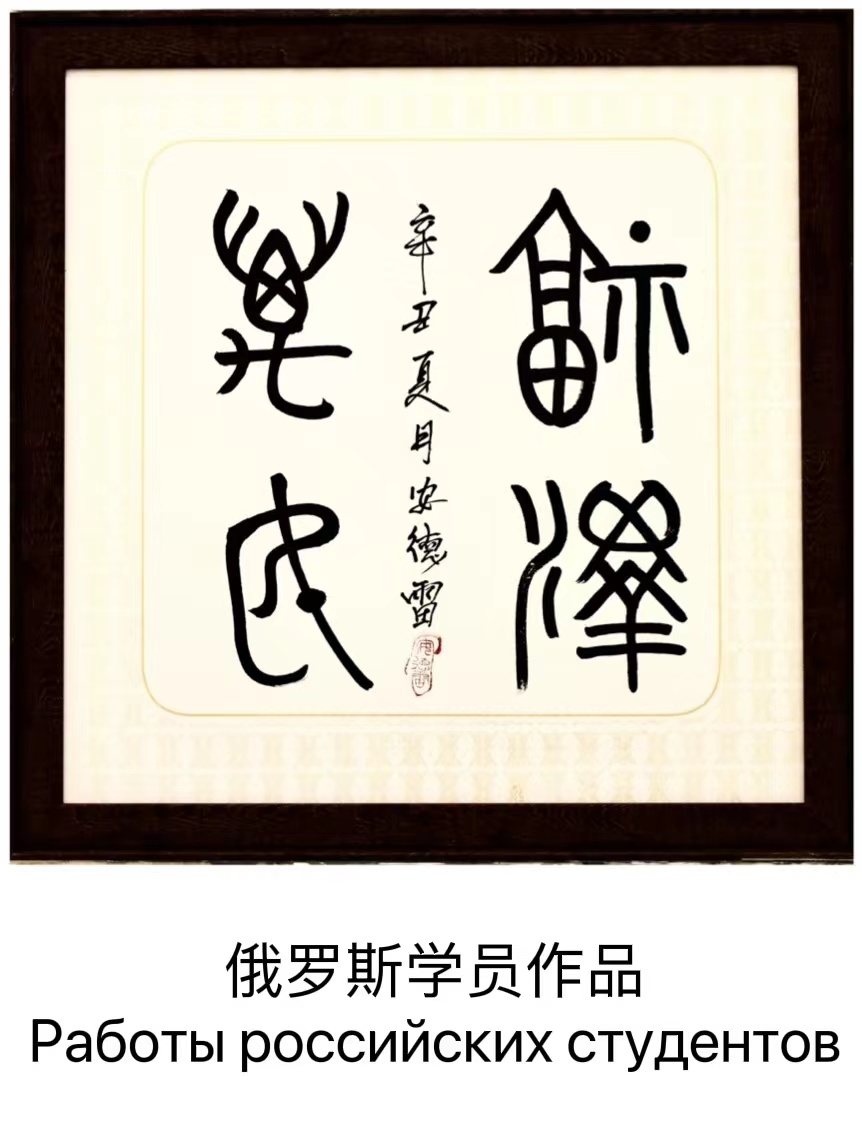 福澤
萬民
辛丑夏月安德雷
俄罗斯学员作品
Работы российских студентов